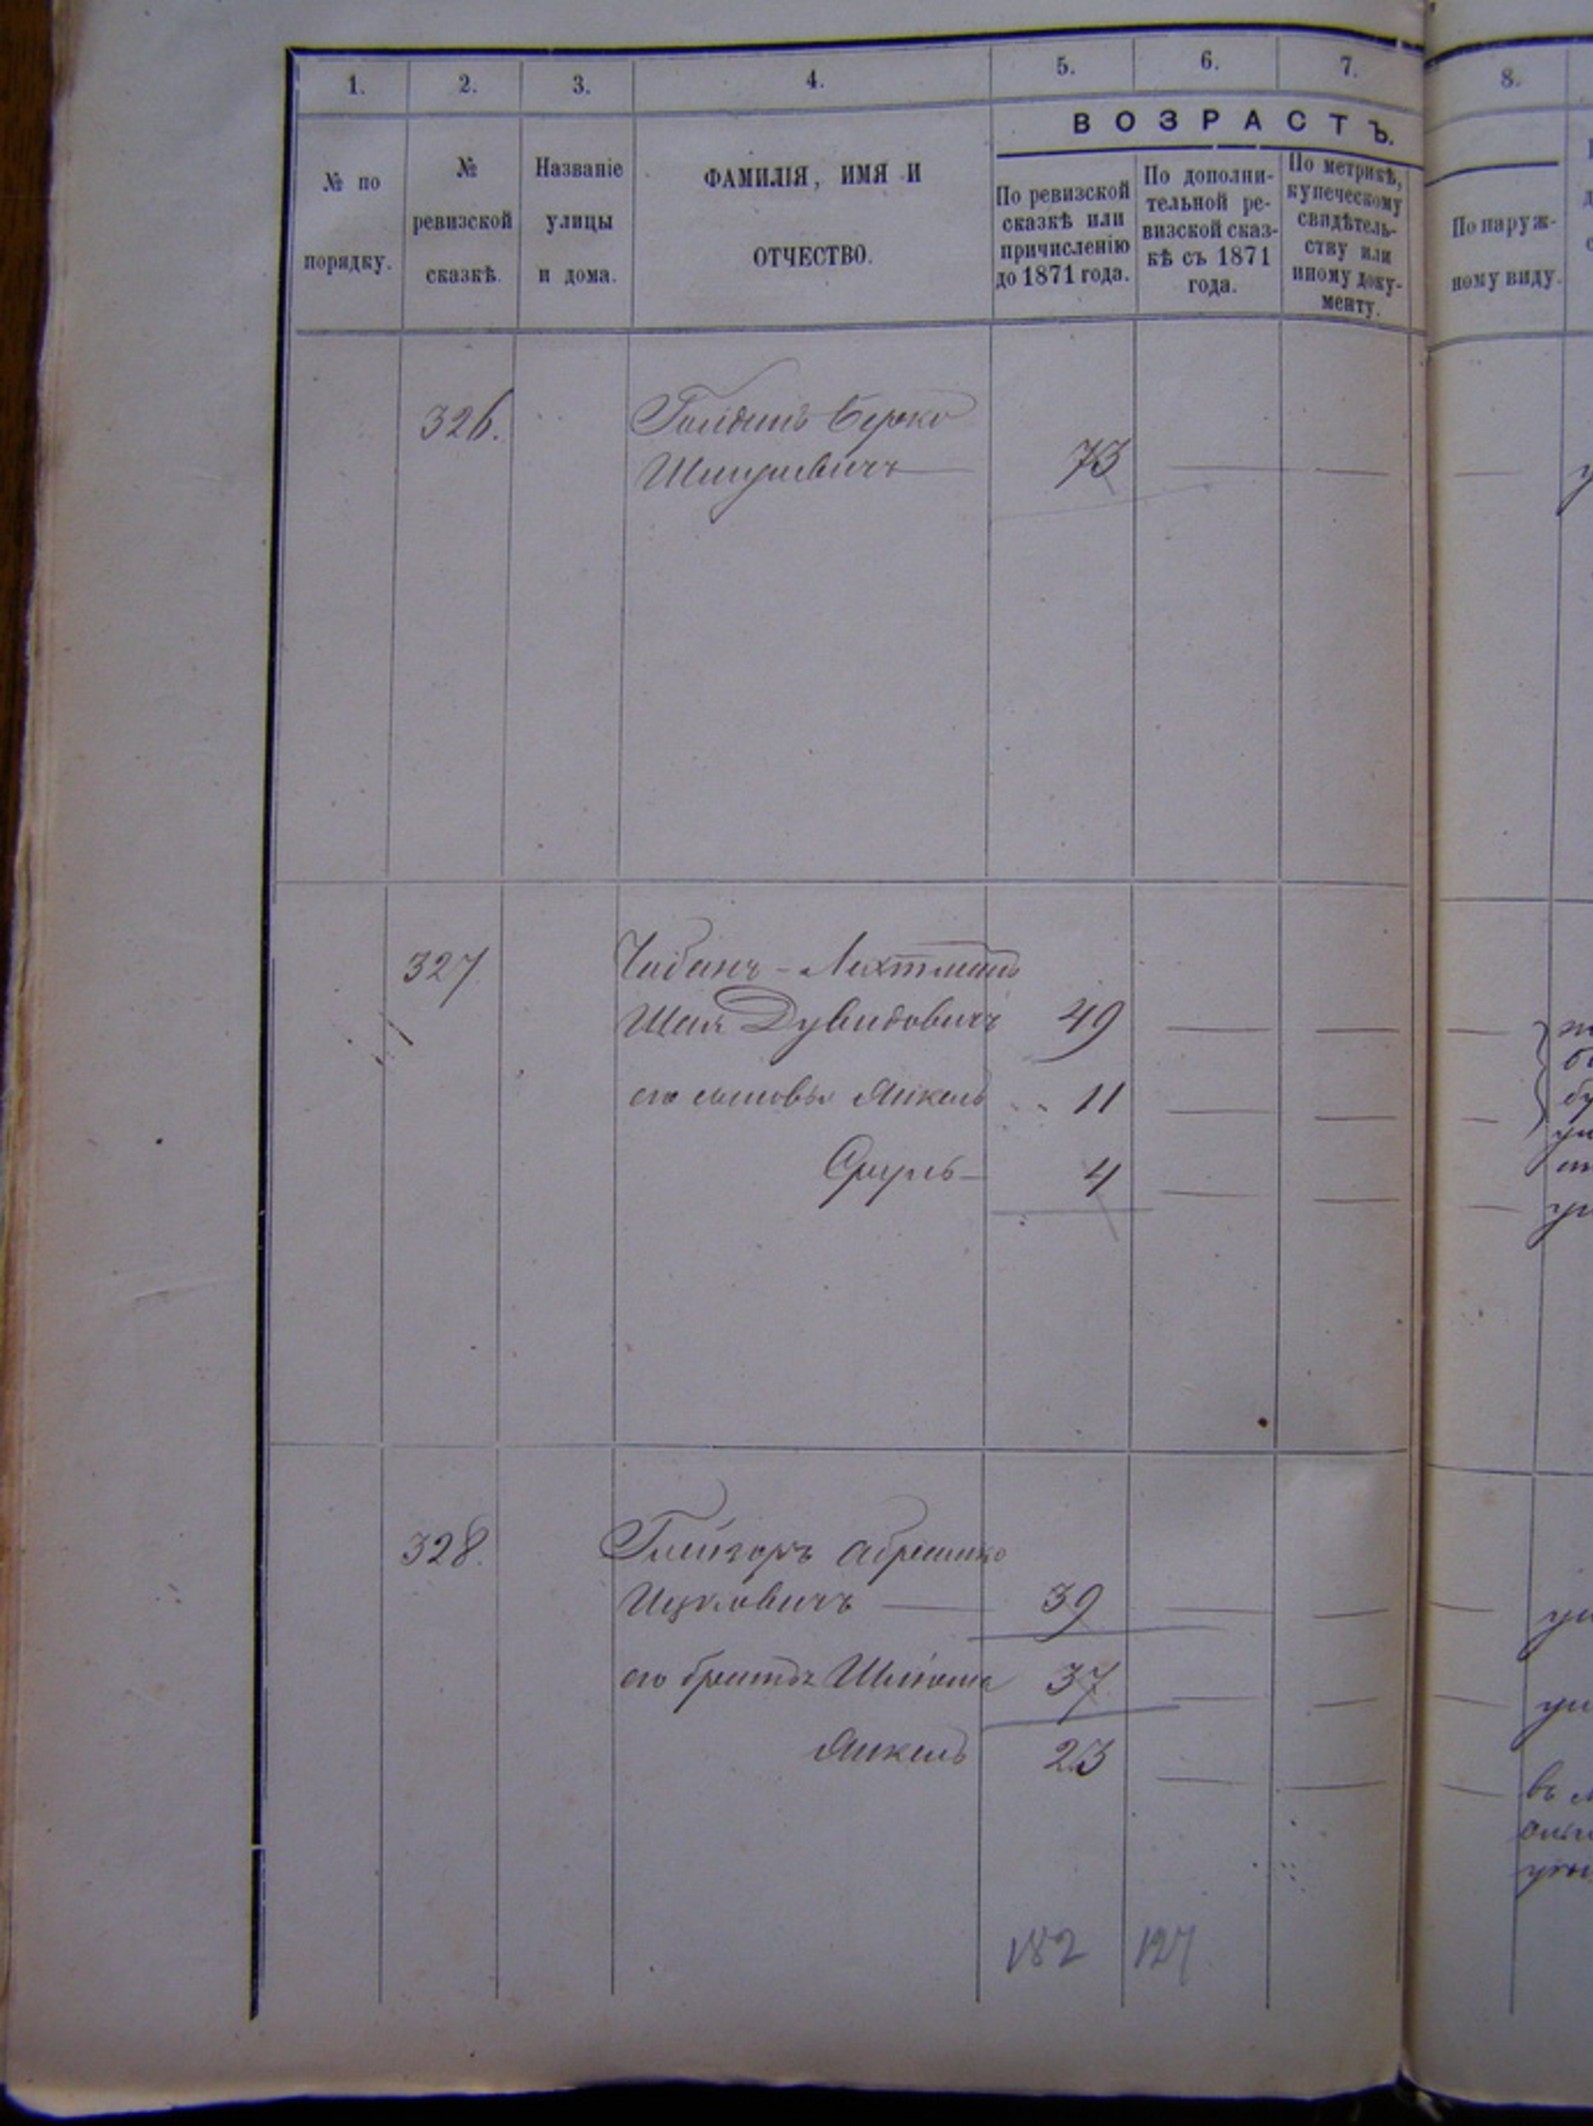 1. 2. 3. 4. 5. 6. 7. 8.
ВОЗРАСТЪ.
№ по порядку.
№ ревизской сказкѣ.
Названіе улицы и дома.
ФАМИЛІЯ, ИМЯ И
ОТЧЕСТВО.
По ревизской
сказкѣ или
причисленію
до 1871 года.
По дополни-
тельной ре-
визской сказ-
кѣ съ 1871
года.
По метрикѣ,
купеческому
свидѣтель-
ству или
иному доку-
менту.
По наруж-
ному виду.
326. Голдинъ Берко
Шмулевичъ 73
327 Чабанъ-Лехтманъ
Шая Дувидовичъ 49
его сыновья Янкель 11
Сруль 4
328. Глейзоръ Абрамко
Ицковичъ 39
его братья Шлиома 37
Янкель 23
182 127